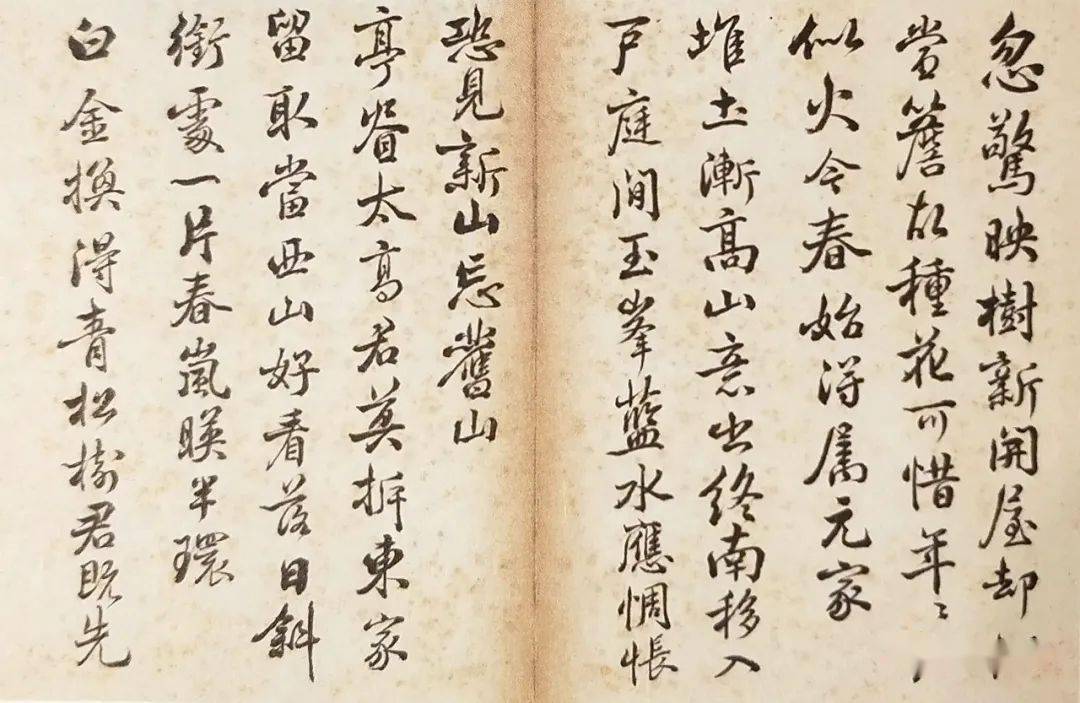 忽驚映樹新開屋却
當簷故種花可惜年〻
似火今春始得属元家
堆土漸高山意出終南移入
戶庭間玉峯藍水應惆悵
恐見新山忘舊山
亭脊太高君莫拆東家
留取當西山好看落日斜
銜處一片春嵐暎半環
白金換得青松樹君既先